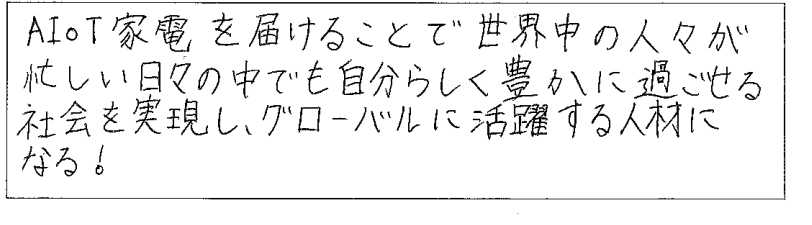 AIoT家電を届けることで世界中の人々が
忙しい日々の中でも自分らしく豊かに過ごせる
社会を実現し、グローバルに活躍する人材に
なる！